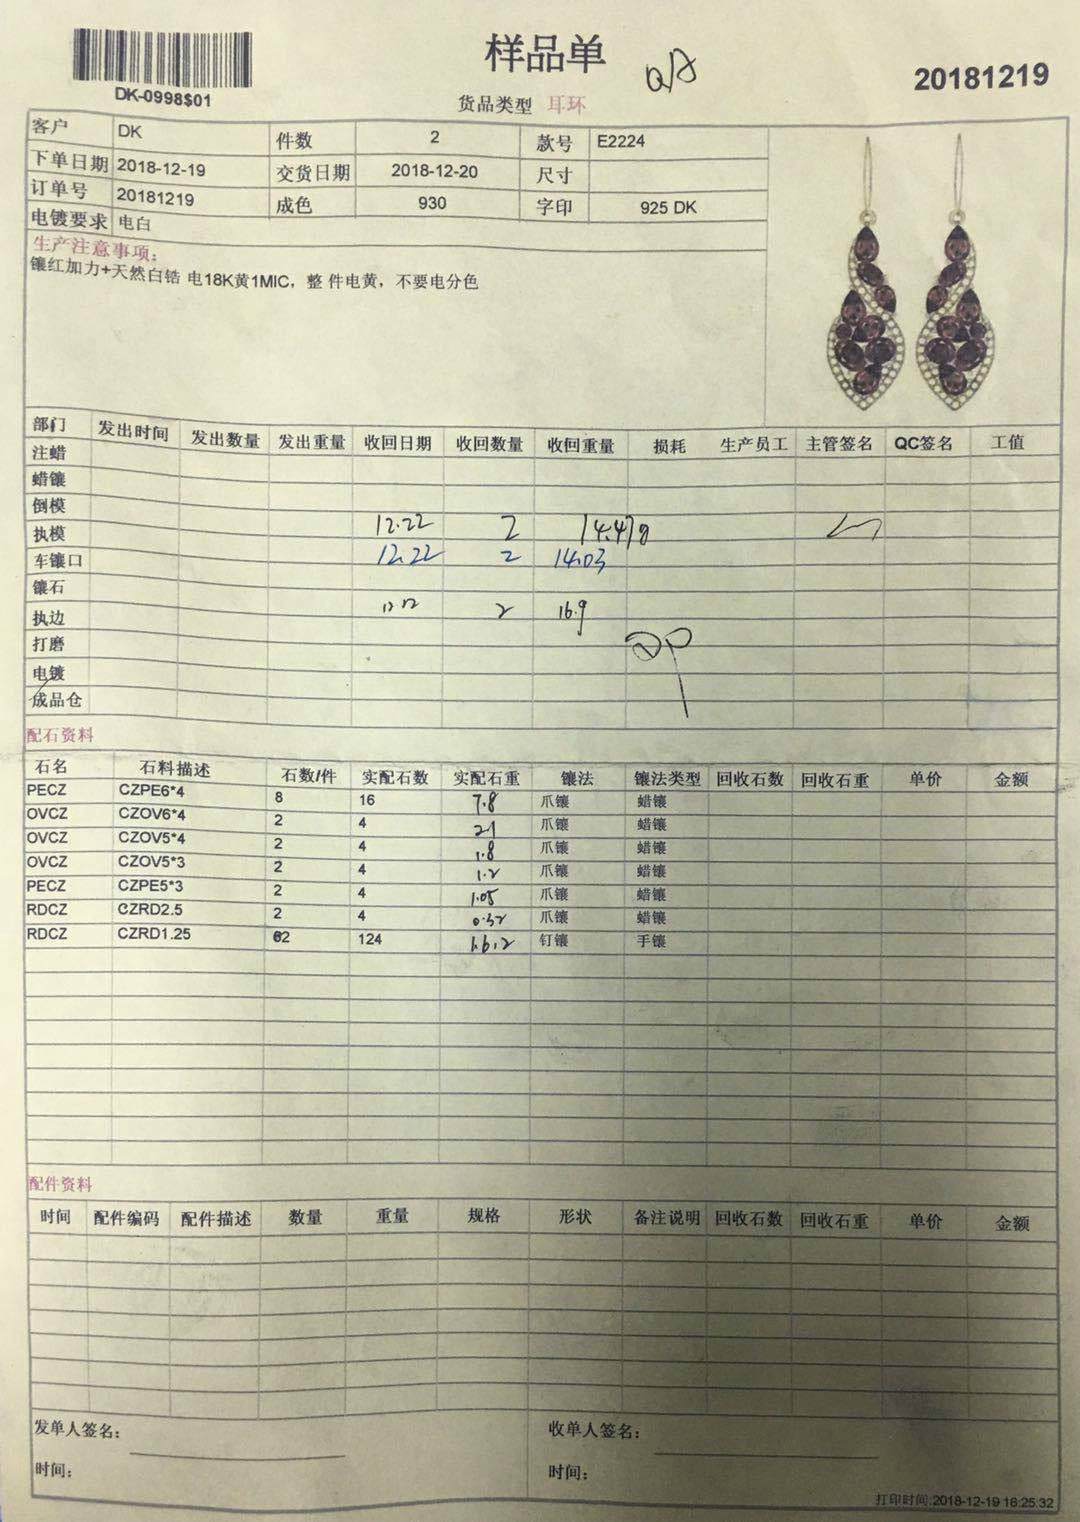 样品单
20181219
DK-0998$01
货品类型 耳环
客户 DK 件数 2 款号 E2224
下单日期 2018-12-19 交货日期 2018-12-20 尺寸
订单号 20181219 成色 930 字印 925 DK
电镀要求 电白
生产注意事项:
镶红加力+天然白锆 电18K黄1MIC，整 件电黄，不要电分色
部门 发出时间 发出数量 发出重量 收回日期 收回数量 收回重量 损耗 生产员工 主管签名 QC签名 工值
注蜡
蜡镶
倒模
执模 12.22 2 14.47g
车镶口 12.22 2 14.03
镶石
执边 2 16.9
打磨
电镀
成品仓
配石资料
石名 石料描述 石数/件 实配石数 实配石重 镶法 镶法类型 回收石数 回收石重 单价 金额
PECZ CZPE6*4 8 16 7.8 爪镶 蜡镶
OVCZ CZOV6*4 2 4 21 爪镶 蜡镶
OVCZ CZOV5*4 2 4 1.8 爪镶 蜡镶
OVCZ CZOV5*3 2 4 1.2 爪镶 蜡镶
PECZ CZPE5*3 2 4 1.05 爪镶 蜡镶
RDCZ CZRD2.5 2 4 0.32 爪镶 蜡镶
RDCZ CZRD1.25 62 124 钉镶 手镶
配件资料
时间 配件编码 配件描述 数量 重量 规格 形状 备注说明 回收石数 回收石重 单价 金额
发单人签名: 收单人签名:
时间: 时间:
打印时间:2018-12-19 16:25:32